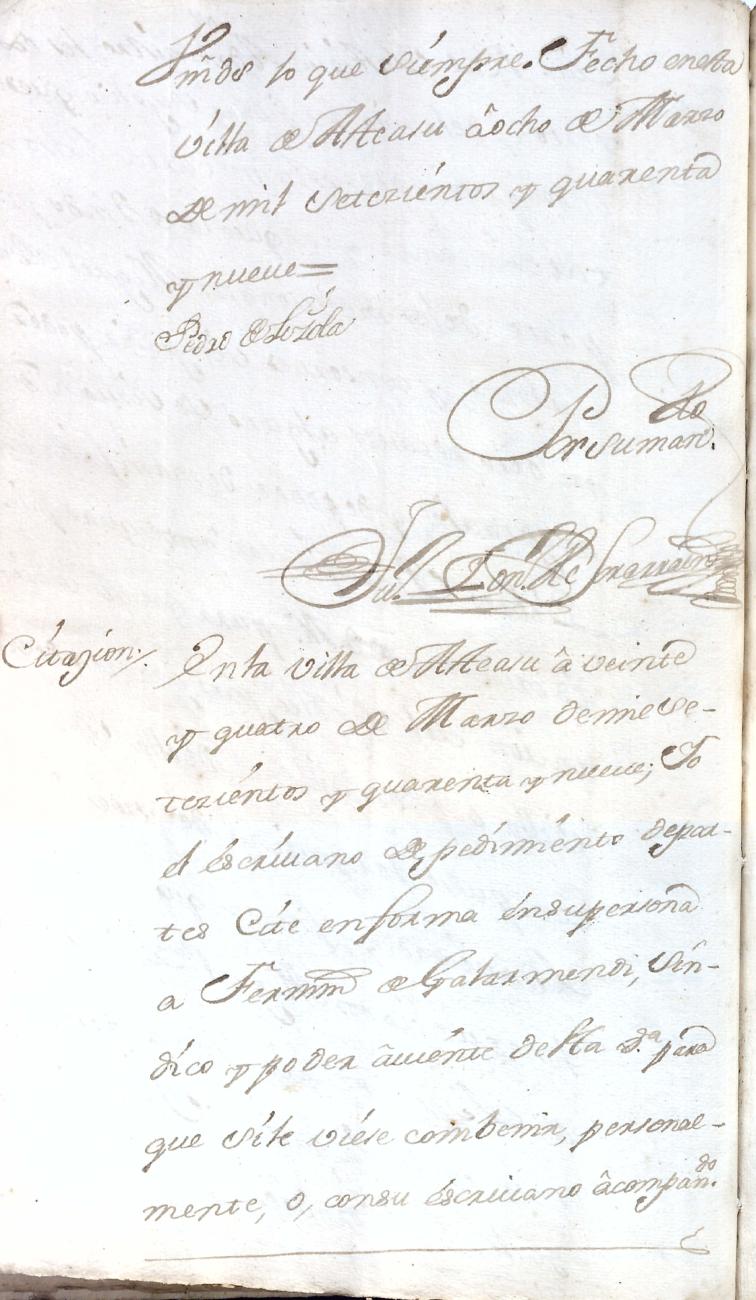 Vmds lo que siempre. Fecho enesta
villa de Atteasu â ocho de Marzo
de mil setezientos y quarenta
y nueve =
Pedro de Loyola
Por su mando
Ju.
Citazion./. En la villa de Atteasu â veinte
y quatro de Marzo demil se-
tezientos y quarenta y nueve; Yo
el éscrivano de pedimiento depar-
tes Cite enforma énsupersona
a Fermin de Galarmendi, Sin-
dico y poder âviente desta d.ª para
que sile viese combenir, personal-
mente, o, consu éscrivano âcompan.do